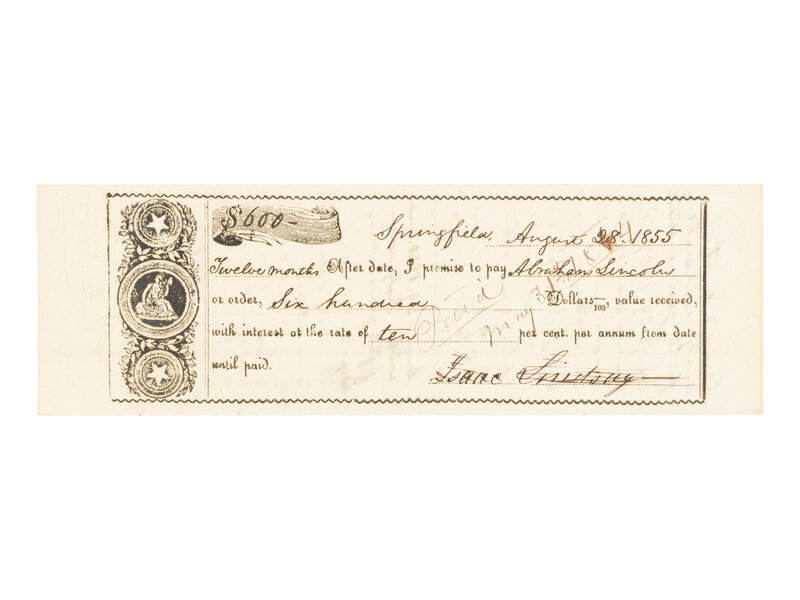 $600-
Springfield, August 28. 1855
Twelve months After date, I promise to pay Abraham Lincoln
or order, Six hundred Dollars 100, value received,
with interest at the rate of ten per cent. per annum from date
until paid.
Isaac Lindsay
Paid
May 31